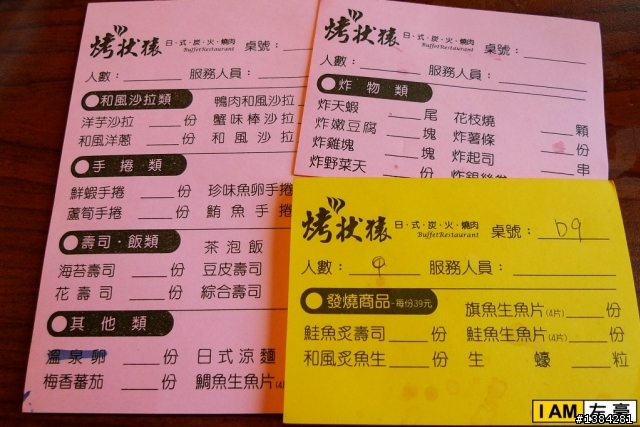 烤狀猿 日·式·炭·火·燒肉 桌號：
BuffetRestaurant
人數： 服務人員：
和風沙拉類 鴨肉和風沙拉
洋芋沙拉 份 蟹味棒沙拉
和風洋蔥 份 和風沙拉
手捲類
鮮蝦手捲 份 珍味魚卵手捲
蘆筍手捲 份 鮪魚手捲
壽司·飯類 茶泡飯
海苔壽司 份 豆皮壽司
花壽司 份 綜合壽司
其他類
溫泉卵 份 日式涼麵
梅香蕃茄 份 鯛魚生魚片(4片)
烤狀猿 日·式·炭·火·燒肉 桌號：
BuffetRestaurant
人數： 服務人員：
炸物類
炸天蝦 尾 花枝燒 顆
炸嫩豆腐 塊 炸薯條 份
炸雞塊 塊 炸起司 串
炸野菜天 份
烤狀猿 日·式·炭·火·燒肉 桌號： D9
BuffetRestaurant
人數： 9 服務人員：
發燒商品-每份39元 旗魚生魚片(4片) 份
鮭魚炙壽司 份 鮭魚生魚片(4片) 份
和風炙魚生 份 生蠔 粒
I AM 左高
#1384281